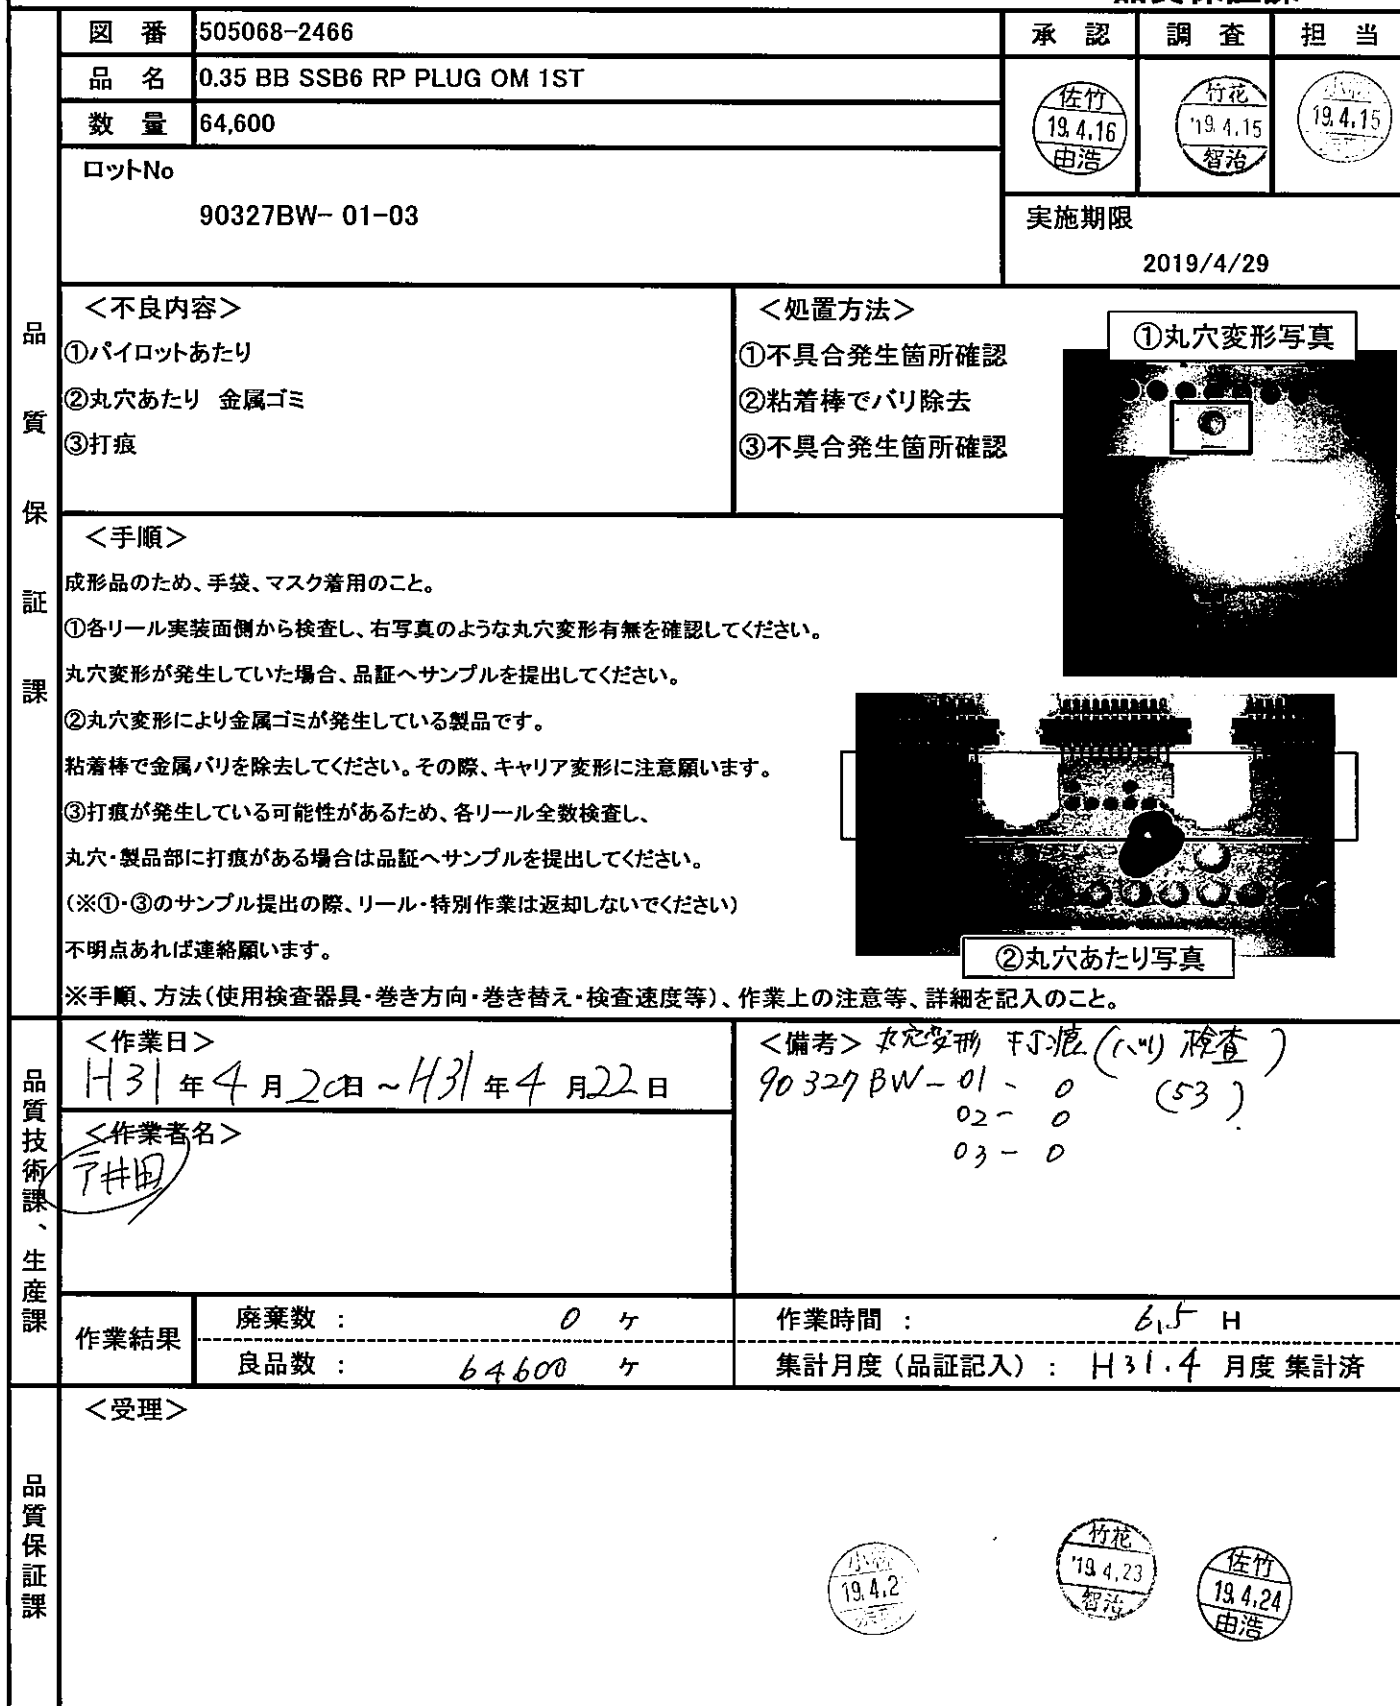 図番 505068-2466
品名 0.35 BB SSB6 RP PLUG OM 1ST
数量 64,600
ロットNo
90327BW- 01-03
承認 調査 担当
佐竹 19.4.16 由浩
竹花 '19.4.15 智治
19.4.15
実施期限
2019/4/29
品質保証課
＜不良内容＞
①パイロットあたり
②丸穴あたり 金属ゴミ
③打痕
＜処置方法＞
①不具合発生箇所確認
②粘着棒でバリ除去
③不具合発生箇所確認
①丸穴変形写真
＜手順＞
成形品のため、手袋、マスク着用のこと。
①各リール実装面側から検査し、右写真のような丸穴変形有無を確認してください。
丸穴変形が発生していた場合、品証へサンプルを提出してください。
②丸穴変形により金属ゴミが発生している製品です。
粘着棒で金属バリを除去してください。その際、キャリア変形に注意願います。
③打痕が発生している可能性があるため、各リール全数検査し、
丸穴・製品部に打痕がある場合は品証へサンプルを提出してください。
(※①・③のサンプル提出の際、リール・特別作業は返却しないでください)
不明点あれば連絡願います。
②丸穴あたり写真
※手順、方法(使用検査器具・巻き方向・巻き替え・検査速度等)、作業上の注意等、詳細を記入のこと。
品質技術課、生産課
＜作業日＞
H31年4月20日～H31年4月22日
＜作業者名＞
井田
＜備考＞ 丸穴変形 打痕 (バリ検査)
90327BW-01- 0 (53)
02- 0
03- 0
作業結果
廃棄数 : 0 ケ
作業時間 : 6.5 H
良品数 : 64600 ケ
集計月度(品証記入) : H31.4 月度 集計済
品質保証課
＜受理＞
19.4.2
竹花 '19.4.23 智治
佐竹 19.4.24 由浩